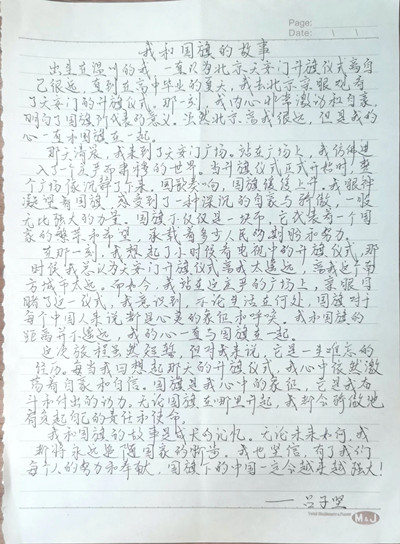 Page:
Date:
我和国旗的故事
出生在温州的我，一直以为北京天安门升旗仪式离自
己很远，直到在高中毕业的夏天，我去北京亲眼观看
了天安门的升旗仪式。那一刻，我内心非常激动和自豪，
明白了国旗所代表的意义。虽然北京离我很远，但是我的
心一直和国旗在一起。
那天清晨，我来到了天安门广场。站在广场上，我仿佛进
入了一个庄严而神秘的世界。当升旗仪式正式开始时，整
个广场像沉静了下来。国歌奏响，国旗缓缓上升。我眼神
凝望着国旗，感受到了一种深沉的自豪与骄傲，一股
无比强大的力量。国旗不仅仅是一块布，它代表着一个国
家的繁荣和希望，承载着多少人民的期盼和努力。
在那一刻，我想起了小时候看电视中的升旗仪式，那
时候我总认为天安门升旗仪式离我太遥远，离我这个南
方城市太远。而如今，我站在这庄严的广场上，亲眼目
睹了这一仪式，我意识到，不论生活在何处，国旗对于
每个中国人来说都是心灵的象征和呼唤。我和国旗的
距离并不遥远，我的心一直与国旗在一起。
这次旅程虽然短暂，但对我来说，它是一生难忘的
经历。每当我回想起那天的升旗仪式，我心中依然激
荡着自豪和自信。国旗是我心中的象征，它是我奋
斗和付出的动力。无论国旗在哪里升起，我都会骄傲地
肩负起自己的责任和使命。
我和国旗的故事是成长的记忆。无论未来如何，我
都将永远追随国家的脚步。我也坚信，有了我们
每个人的努力和奉献，国旗下的中国一定会越来越强大！
——吕子坚
M&J